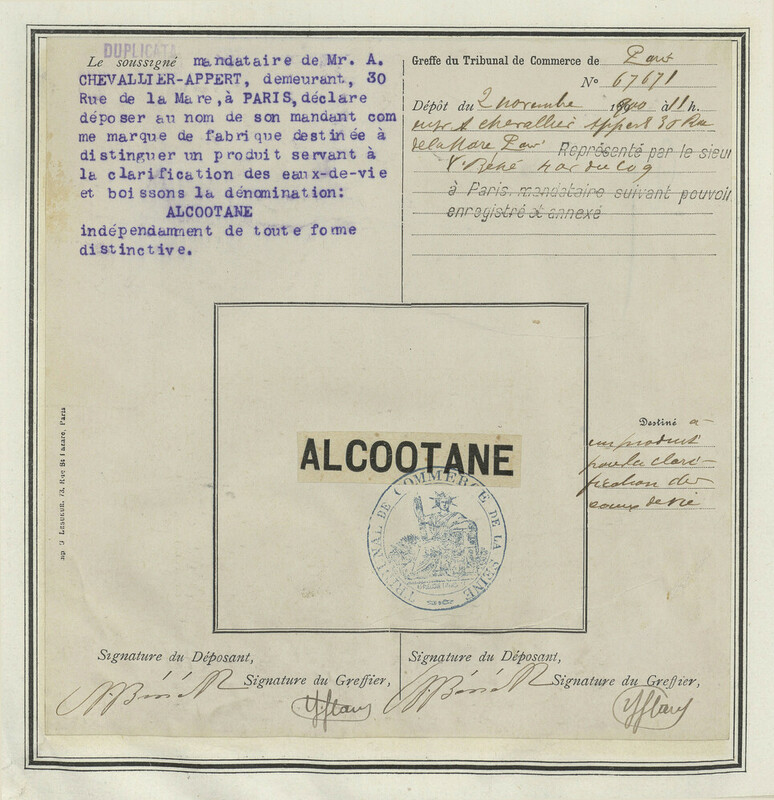 DUPLICATA
Le soussigné mandataire de Mr. A.
CHEVALLIER-APPERT, demeurant, 30
Rue de la Mare, à PARIS, déclare
déposer au nom de son mandant com
me marque de fabrique destinée à
distinguer un produit servant à
la clarification des eaux-de-vie
et boissons la dénomination:
ALCOOTANE
indépendamment de toute forme
distinctive.
Greffe du Tribunal de Commerce de Paris
No 67671
Dépôt du 2 novembre 1900 à 11 h.
A Chevallier Appert 30 Rue
de la Mare Paris Représenté par le sieur
à Paris mandataire suivant pouvoir
enregistré et annexé
ALCOOTANE
TRIBUNAL DE COMMERCE DE LA SEINE
Destiné à
un produit
pour la clari-
fication des
eaux de vie
Imp. G. 73, Rue St Lazare, Paris
Signature du Déposant,
Signature du Greffier,
Signature du Déposant,
Signature du Greffier,